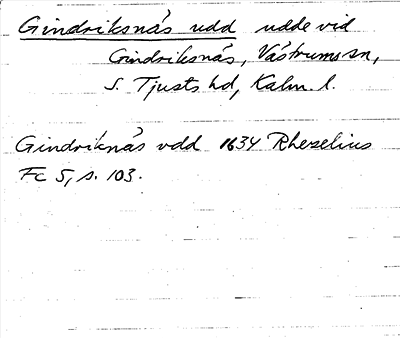 Gindriksnäs udd udde vid
Gindriksnäs, Västrums sn,
S. Tjusts hd, Kalm. l.
Gindriknäs vdd 1634 Rhezelius
Fc 5, s. 103.